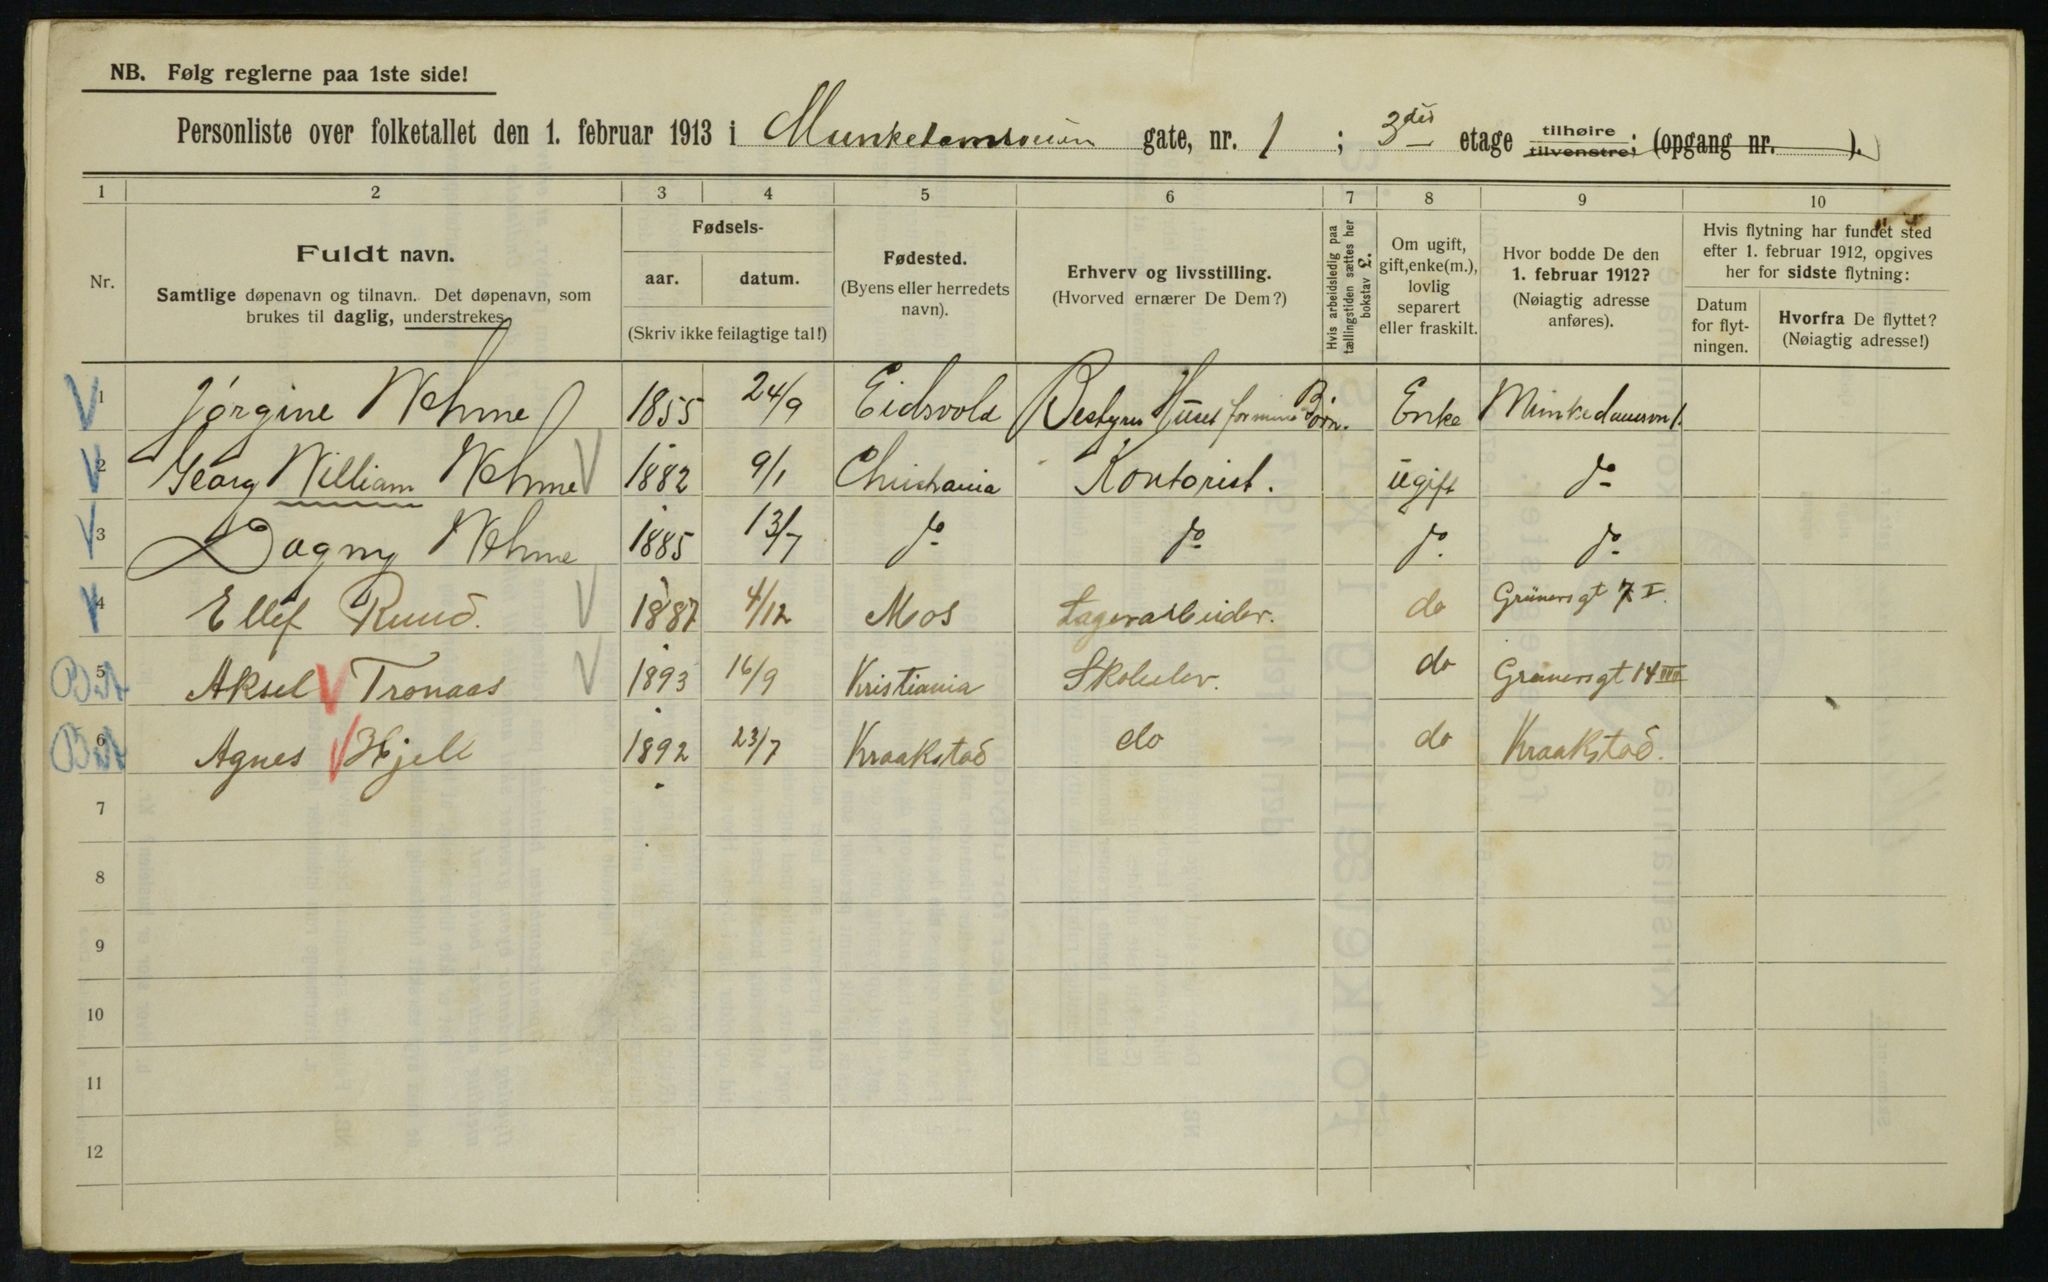 NB. Følg reglerne paa 1ste side!
Personliste over folketallet den 1. februar 1913 i Munkedamsveien gate, nr. 1 ; 3die etage tilhøire tilvenstre; (opgang nr. ).
1 2 3 4 5 6 7 8 9 10
Nr.
Fuldt navn.
Samtlige døpenavn og tilnavn. Det døpenavn, som
brukes til daglig, understrekes.
Fødsels-
aar. datum.
(Skriv ikke feilagtige tal!)
Fødested.
(Byens eller herredets
navn).
Erhverv og livsstilling.
(Hvorved ernærer De Dem?)
Hvis arbeidsledig paa
tællingstiden sættes her
bokstav L.
Om ugift,
gift, enke(m.),
lovlig
separert
eller fraskilt.
Hvor bodde De den
1. februar 1912?
(Nøiagtig adresse
anføres).
Hvis flytning har fundet sted
efter 1. februar 1912, opgives
her for sidste flytning:
Datum
for flyt-
ningen.
Hvorfra De flyttet?
(Nøiagtig adresse!)
1 Jørgine Nehme 1855 24/9 Eidsvold Bestyrer Huset for mine Børn. Enke Munkedamsvn 1.
2 Georg William Nehme 1882 9/1 Christiania Kontorist. ugift do
3 Dagny Nehme 1885 13/7 do do do do
4 Ellef Ruud. 1887 4/12 Mos Lagerarbeider. do Grünersgt 7 I.
5 Aksel Tronaas 1893 16/9 Kristiania Skoleelev. do Grünersgt 14 III
6 Agnes Hjell 1892 23/7 Kraakstad do do Kraakstad.
7
8
9
10
11
12